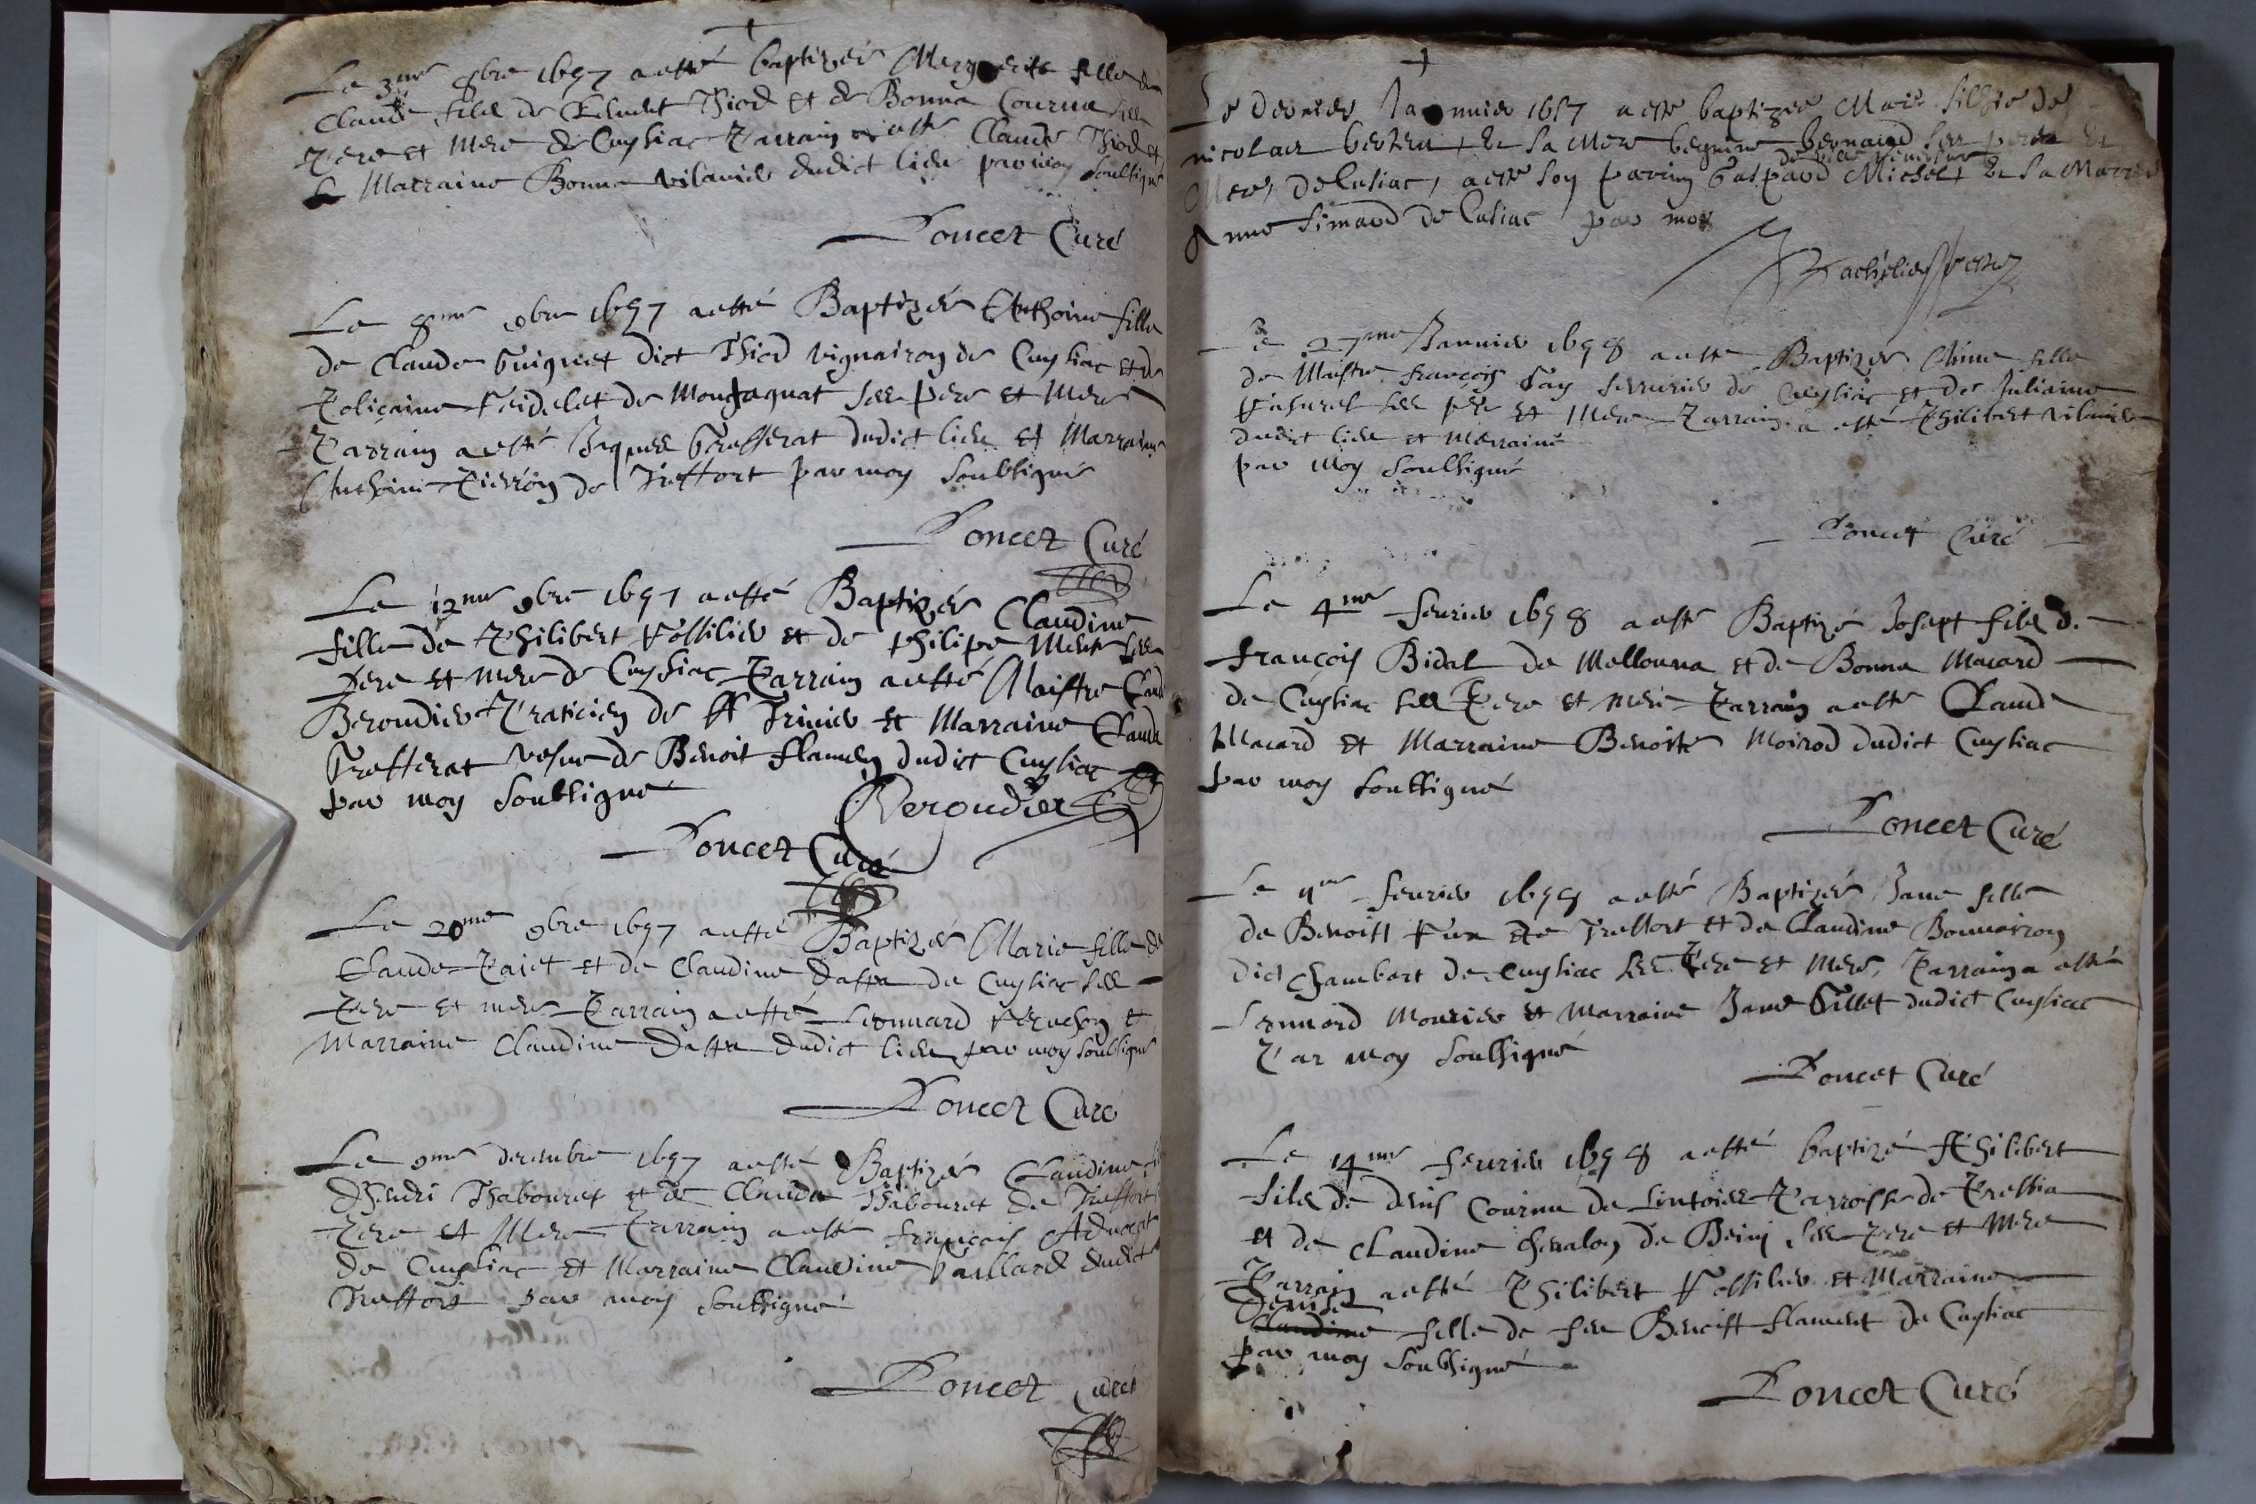 Le 3me 8bre 1657 a esté baptizée Marguerite fille de
Claude filz de Clement Thiod et de Bonna Courna sell
Pere et Mere de Cuysiac Parrain a esté Claude Thiod et
La Marraine Bonna vilanié dudict lieu par moy soubsigné
Poncet Curé
Le 8me 9bre 1657 a esté Baptizée Anthoina fille
de Claude Guignet dict Thiod vignairon de Cuysiac et de
Poliçaine de Montfaquat sell Pere et Mere
Parrain a esté Jaques Gresserat dudict lieu et Marraine
Anthoina Pierron de Treffort par moy soubsigné
Poncet Curé
Le 12me 9bre 1657 a esté Baptizée Claudine
fille de Philibert Fossilieu et de Philipa sell
Pere et mere de Cuysiac Parrain a esté Maistre Claude
Beroudier Praticien de St Trivier et Marraine Clauda
Gresserat vefve de Benoit flamen dudict Cuysiac
par moy soubsigné
Beroudier
Poncet Curé
Le 20me 9bre 1657 a esté Baptizée Marie fille de
Claude Paiet et de Claudine Dassa de Cuysiac sell
Pere et mere Parrain a esté Leonnard et
Marraine Claudine Dassa dudict lieu par moy soubsigné
Poncet Curé
Le 9me decembre 1657 a esté Baptizée Claudine
D'hendri Thabouret et de Clauda Thabouret de Treffort
Pere et Mere Parrain a esté François Aduocat
de Cuysiac et Marraine Claudine paillard dudict
Treffort par moy soubsigné
Poncet Curé
Le dernier Jannuier 1657 a esté baptizée Marie fillie de
nicolas et sa mere bernard ses pere et
de ville
Mere, de Cusiac, a esté son parrin Gaspard Michel, et sa Marrine
Anne Simand de Cusiac par moy
Bachelier
Le 27me Januier 1658 a esté Baptizée Anne fille
de Maistre françois Pay serrurier de Cuysiac et de Juliaine
sell pere et Mere Parrain a esté Philibert vilanié
dudict lieu et Marraine
par moy soubsigné
Poncet Curé
Le 4me feurier 1658 a esté Baptizé Josept filz de
françois Bidal de Mellonna et de Bonna Macard
de Cuysiac sell Pere et mere Parrain a esté Claude
Macard et Marraine Benoite Moirod dudict Cuysiac
par moy soubsigné
Poncet Curé
Le feurier 1658 a esté Baptizée Jane fille
de Benoist de Treffort et de Claudine Bonnairon
dict Chambart de Cuysiac sell Pere et Mere, Parrain a esté
Leonnard Mourier et Marraine Jane Gillet dudict Cuysiac
Par moy soubsigné
Poncet Curé
Le 14me feurier 1658 a esté baptizé Philibert
filz de denis Courna de Parroisse de Pressia
et de Claudine cheualon de Beini sell Pere et Mere
Parrain a esté Philibert Fossilieu et Marraine
Denise
Claudine fille de feu Benoist flament de Cuysiac
par moy soubsigné
Poncet Curé